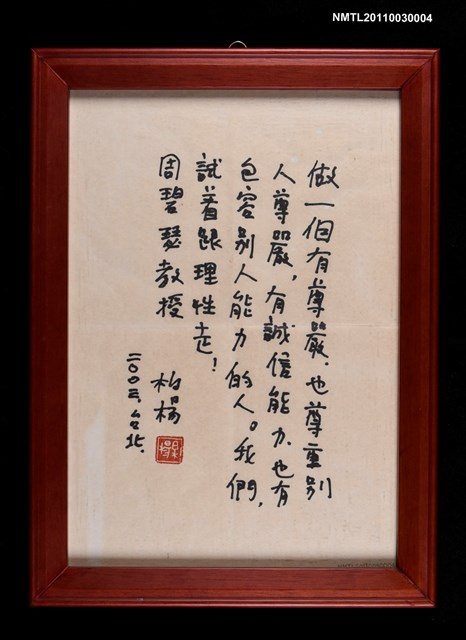 NMTL20110030004
做一個有尊嚴．也尊重別
人尊嚴，有誠信能力、也有
包容別人能力的人。我們，
試着跟理性走！
周碧瑟教授
柏楊
二００三、台北．